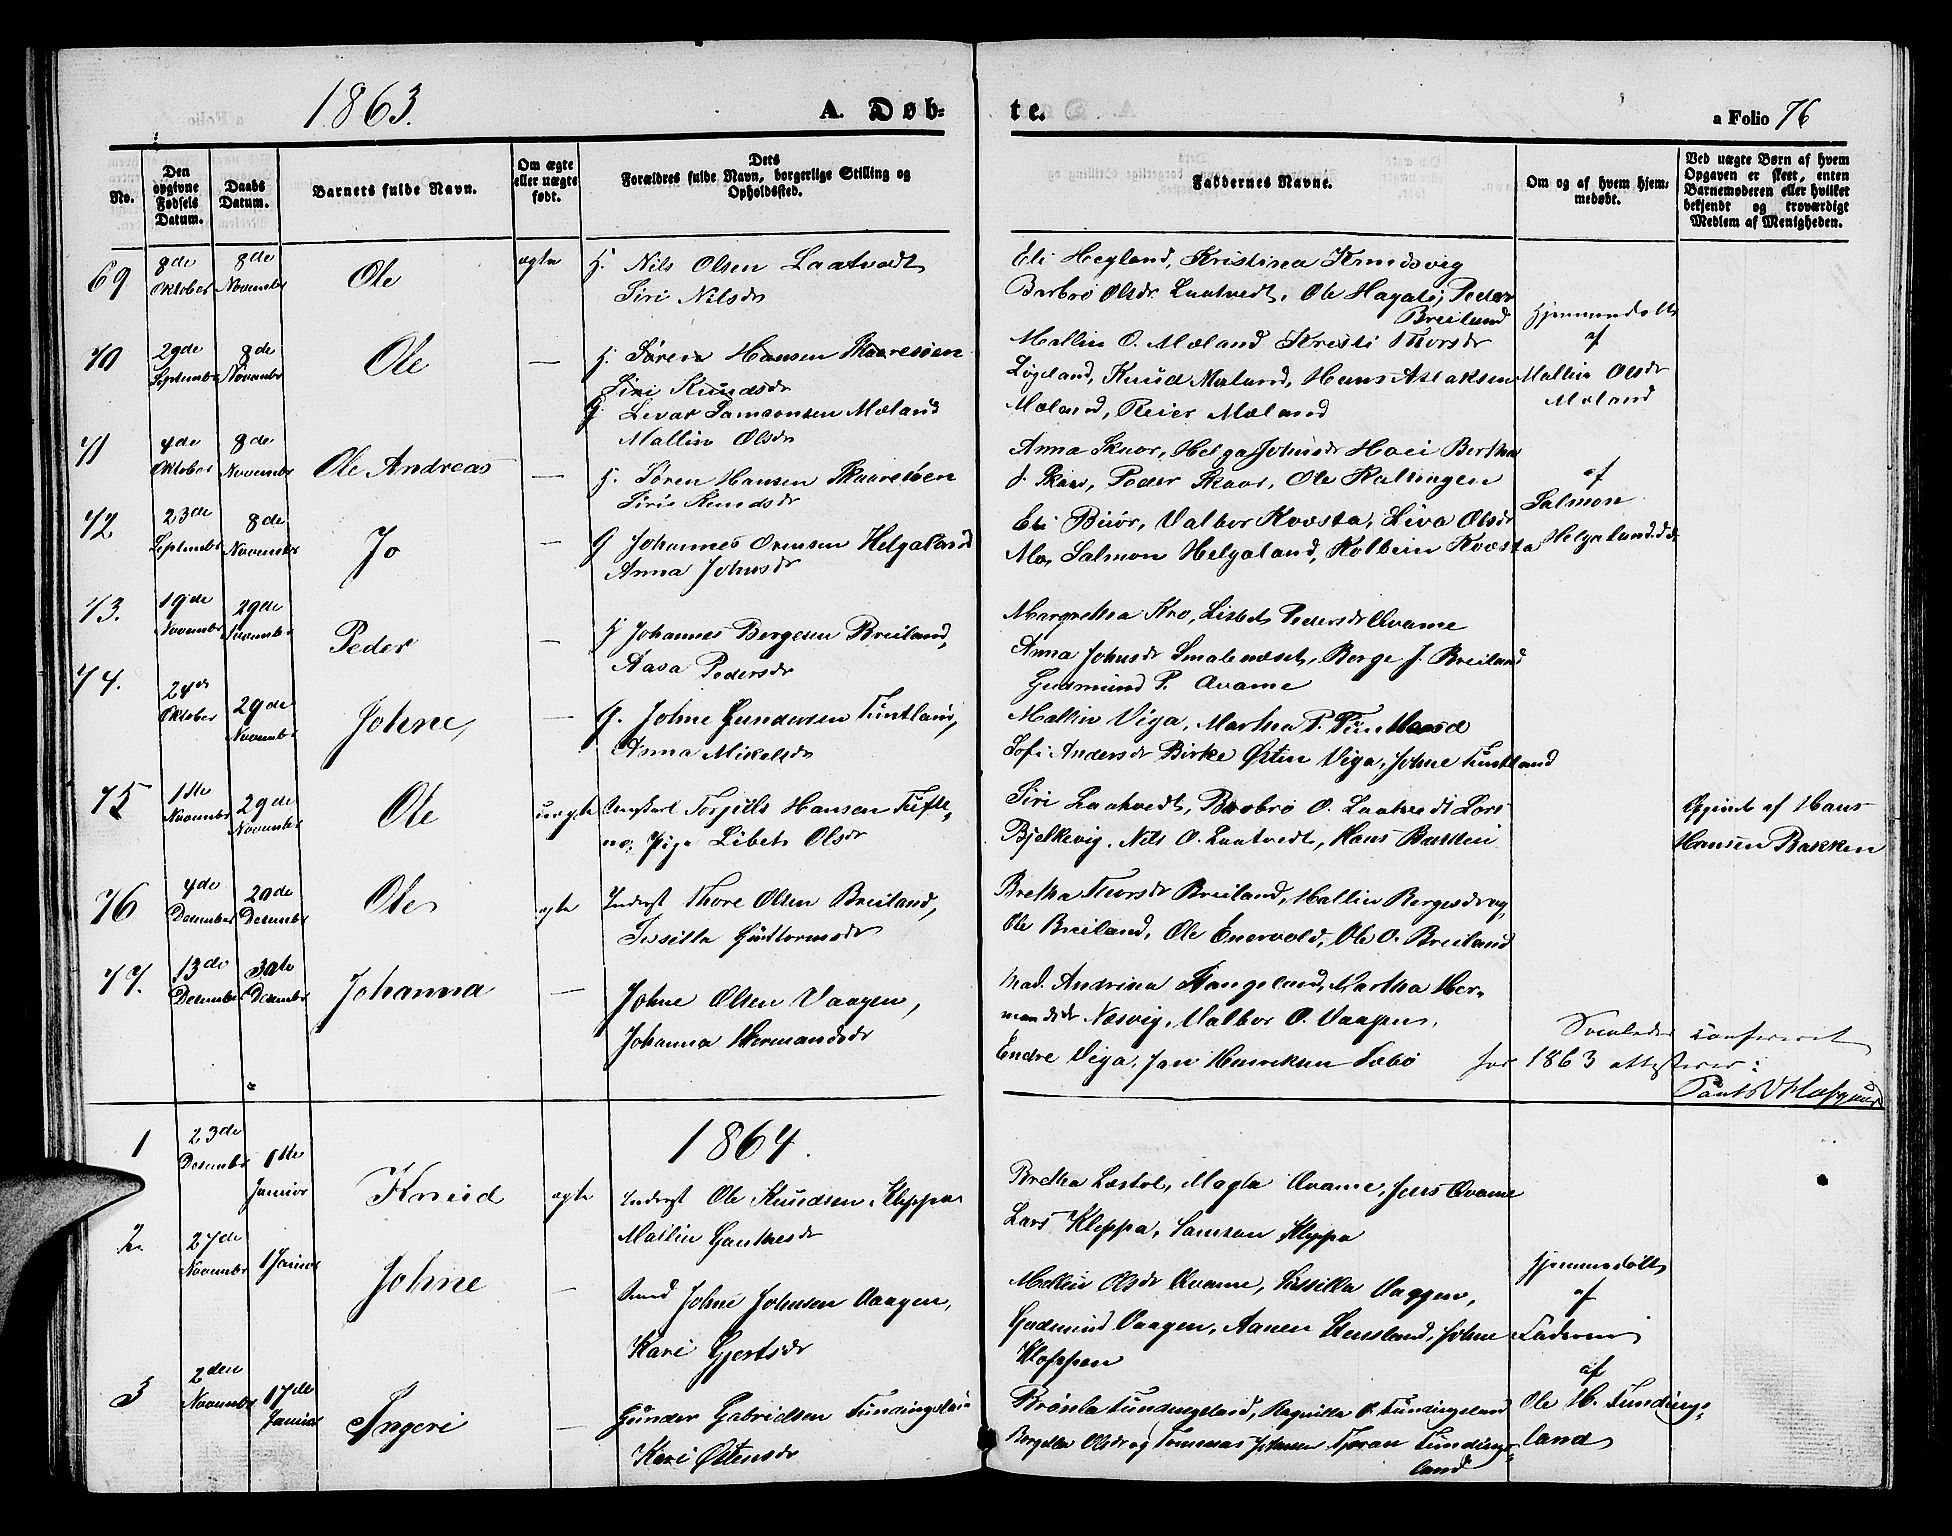 1863.
A. Døb-
te.
a Folio 76
No.
Den opgivne Fødsels Datum.
Daabs Datum.
Barnets fulde Navn.
Om ægte eller uægte født.
Dets Forældres fulde Navn, borgerlige Stilling og Opholdssted.
Faddernes Navne.
Om og af hvem hjem-medøbt.
Ved uægte Børn af hvem Opgaven er skeet, enten Barnemoderen eller hvilket bekjendt og troværdigt Medlem af Menigheden.
69
8de Oktober
8de November
Ole
ægte
Nils Olsen Laatvedt
Siri Nilsdr
Eli Hegland, Kristina Knudsvig
Barbro Olsdr Laatvedt, Ole Hagali, Peder
Breiland
70
29de September
8de November
Ole
—
Søren Hansen Skaaresøen
Siri Knudsdr
Mallin O. Mæland Kristi Thorsdr
Løgeland, Knud Mæland, Hans Aslaksen
Mæland, Reier Mæland
Hjemmedøbt
af
Mallin Olsdr
Mæland
71
4de Oktober
8de November
Ole Andreas
—
G Sivar Samsonsen Mæland
Mallin Olsdr
Søren Hansen Skaaresøen
Siri Knudsdr
Anna Skaar, Helga Johnsdr Hoei Bertha
J. Skaar, Peder Skaar, Ole Kallingen
72
23de September
8de November
Jo
—
G Johannes Helgaland
Anna Johnsdr
Eli Buør, Valbor Kvæsta, Siva Olsdr
Mo, Salmon Helgaland, Kolbein Kvæsta
af
Salmon
Helgaland
73.
19de November
29de November
Peder
—
Johannes Bergesen Breiland,
Aasa Pedersdr
Margretha Kro, Lisbet Pedersdr Qvame
Anna Johnsdr Smalenæset, Berge J. Breiland
Gudmund P. Qvame
74.
24de Oktober
29de November
Johne,
—
G. Johne Gundersen Funtland,
Anna Mikelsdr
Mallin Viga, Martha P.
Sofi Andersdr Birke Østen Viga, Johne Funtland
75
1ste November
29de November
Ole
uægte
Ungkarl Torjuls Hansen Tufte-
no, Pige Libet Olsdr
Siri Laatvedt, Barbro O. Laatvedt Lars
Bjelkevig, Nils O. Laatvedt, Hans Bakken
Opgivet af Hans
Hansen Bakken
76
4de December
20de December
Ole
ægte
Inderst Thore Olsen Breiland,
Sissilla Guttormsdr
Bretha Thorsdr Breiland, Mallin Bergesdr og
Ole Breiland, Ole Enervold, Ole O. Breiland
77.
13de December
December
Johanna
—
Johne Olsen Vaagen,
Johanna Hermandsdr
Mad. Andrina Stangeland, Martha Her-
mandsdr Næsvig, Valbor O. Vaagen,
Endre Viga, Jan Henriksen Sæbø
conferert
for 1863 attesterer:
1864.
1
23de December
1ste Januar
Knud
ægte
Inderst Ole Knudsen Kleppa
Mallin Gautesdr
Bretha Læstøl, Magla Qvame, Jens Qvame
Lars Kleppa, Samson Kleppa
2
27de November
1 Januar
Johne
—
Johne Johnsen Vaagen,
Kari Gjertsdr
Mallin Olsdr Qvame, Sissilla Vaagen,
Gudmund Vaagen, Aanen Stensland, Johne
Kloppen
Hjemmedøbt
af
Faderen
3
2den November
17de Januar
Ingeri
—
Gunder Gabrielsen Tundingsland
Kari Østensdr
Brønla Tundingsland, Ragnilla P. Tundingsland
Borgilla Olsdr og Tommas Johnsen Tjoran Tundings-
land
af
Ole H. Tundings-
land